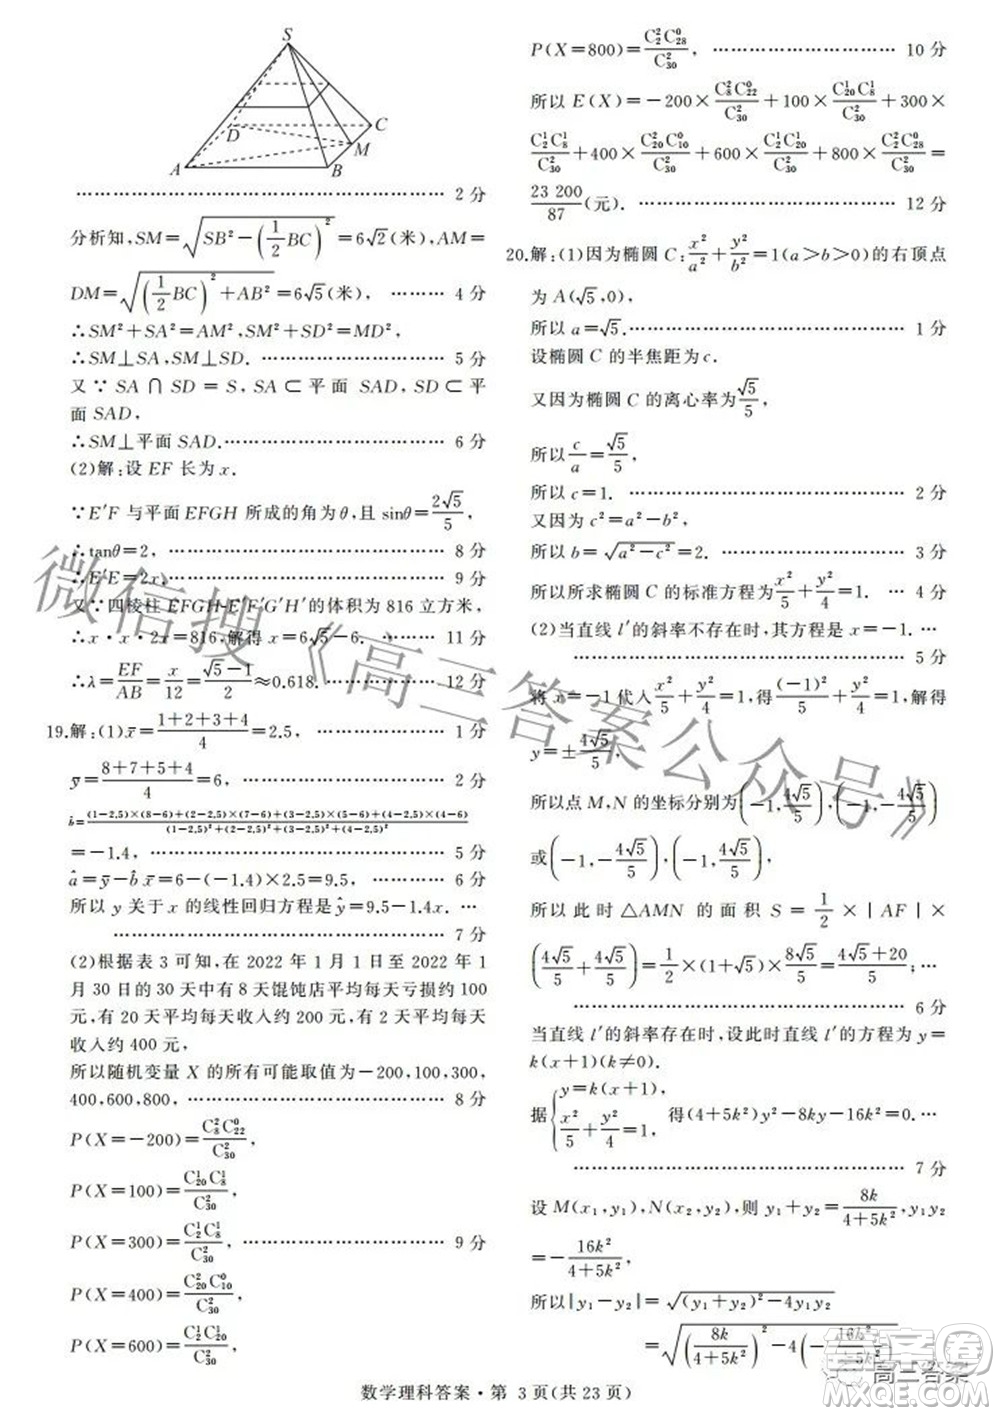 S
D
C
A
M
B
………………………………… 2 分
分析知,SM=√(SB²-(1/2 BC)²)=6√2(米),AM=
DM=√((1/2 BC)²+AB²)=6√5(米), ……… 4 分
∴SM²+SA²=AM²,SM²+SD²=MD²,
∴SM⊥SA,SM⊥SD. ………………… 5 分
又∵SA∩SD=S,SA⊂平面 SAD,SD⊂平
面 SAD,
∴SM⊥平面 SAD.…………………… 6 分
(2)解:设 EF 长为 x.
∵E′F 与平面 EFGH 所成的角为 θ,且 sinθ=2√5/5,
∴tanθ=2, ………………………… 8 分
∴E′E=2x, ………………………… 9 分
又∵四棱柱 EFGH-E′F′G′H′的体积为 816 立方米,
∴x·x·2x=816,解得 x=6√5-6. …… 11 分
∴λ=EF/AB=x/12=(√5-1)/2≈0.618.…………… 12 分
19.解:(1)x̄=(1+2+3+4)/4=2.5, ………… 1 分
ȳ=(8+7+5+4)/4=6, ……………………… 2 分
b̂=((1-2.5)×(8-6)+(2-2.5)×(7-6)+(3-2.5)×(5-6)+(4-2.5)×(4-6))/((1-2.5)²+(2-2.5)²+(3-2.5)²+(4-2.5)²)
=-1.4, ……………………………… 5 分
â=ȳ-b̂x̄=6-(-1.4)×2.5=9.5, …… 6 分
所以 y 关于 x 的线性回归方程是 ŷ=9.5-1.4x. …
……………………………… 7 分
(2)根据表 3 可知,在 2022 年 1 月 1 日至 2022 年 1
月 30 日的 30 天中有 8 天馄饨店平均每天亏损约 100
元,有 20 天平均每天收入约 200 元,有 2 天平均每天
收入约 400 元,
所以随机变量 X 的所有可能取值为-200,100,300,
400,600,800, ……………………… 8 分
P(X=-200)=C₈²C₂₂⁰/C₃₀²,
P(X=100)=C₂₀¹C₈¹/C₃₀²,
P(X=300)=C₂¹C₈¹/C₃₀², …………………… 9 分
P(X=400)=C₂₀²C₁₀⁰/C₃₀²,
P(X=600)=C₂¹C₂₀¹/C₃₀²,
P(X=800)=C₂²C₂₈⁰/C₃₀², ………………………… 10 分
所以 E(X)=-200×C₈²C₂₂⁰/C₃₀²+100×C₂₀¹C₈¹/C₃₀²+300×
C₂¹C₈¹/C₃₀²+400×C₂₀²C₁₀⁰/C₃₀²+600×C₂¹C₂₀¹/C₃₀²+800×C₂²C₂₈⁰/C₃₀²=
23 200/87(元). …………………………… 12 分
20.解:(1)因为椭圆 C:x²/a²+y²/b²=1(a>b>0)的右顶点
为 A(√5,0),
所以 a=√5.………………………… 1 分
设椭圆 C 的半焦距为 c.
又因为椭圆 C 的离心率为√5/5,
所以 c/a=√5/5,
所以 c=1. ………………………… 2 分
又因为 c²=a²-b²,
所以 b=√(a²-c²)=2. ……………… 3 分
所以所求椭圆 C 的标准方程为 x²/5+y²/4=1. … 4 分
(2)当直线 l′的斜率不存在时,其方程是 x=-1. …
……………………………… 5 分
将 x=-1 代入 x²/5+y²/4=1,得 (-1)²/5+y²/4=1,解得
y=±4√5/5,
所以点 M,N 的坐标分别为(-1,4√5/5),(-1,-4√5/5)
或(-1,-4√5/5),(-1,4√5/5),
所以此时△AMN 的面积 S=1/2×|AF|×
(4√5/5+4√5/5)=1/2×(1+√5)×8√5/5=(4√5+20)/5; …
……………………………… 6 分
当直线 l′的斜率存在时,设此时直线 l′的方程为 y=
k(x+1)(k≠0).
据{y=k(x+1), x²/5+y²/4=1 得(4+5k²)y²-8ky-16k²=0. …
……………………………… 7 分
设 M(x₁,y₁),N(x₂,y₂),则 y₁+y₂=8k/(4+5k²),y₁y₂
=-16k²/(4+5k²)
所以|y₁-y₂|=√((y₁+y₂)²-4y₁y₂)
=√((8k/(4+5k²))²-4(-16k²/(4+5k²)))
数学理科答案·第 3 页(共 23 页)
微信搜《高三答案公众号》
答案圈
高三答案